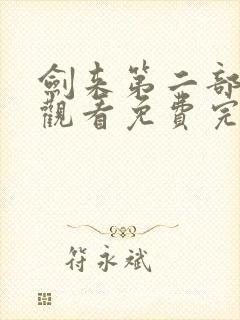 劍来第二部
觀看免費完
符永斌